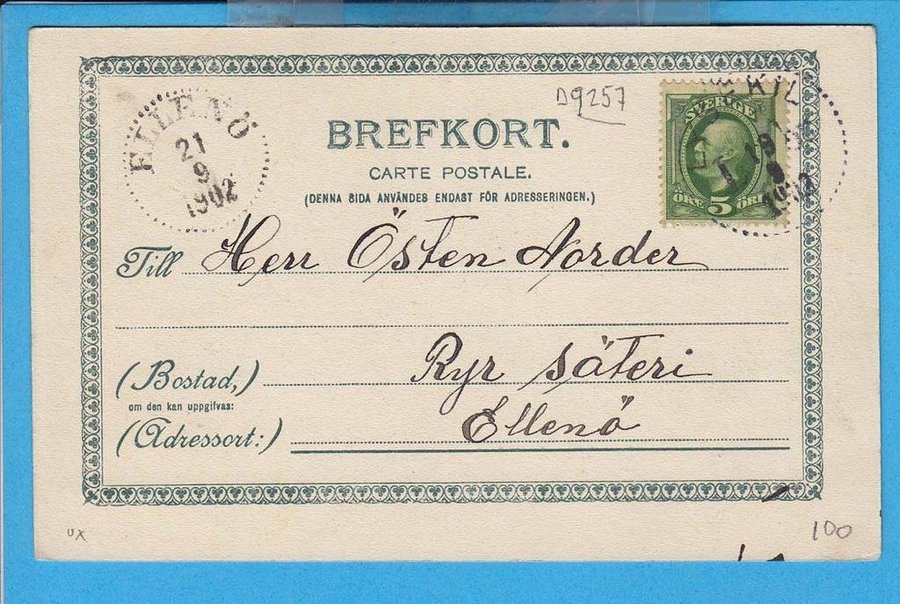 ELLENÖ
21
9
1902
D9257
BREFKORT.
CARTE POSTALE.
(DENNA SIDA ANVÄNDES ENDAST FÖR ADRESSERINGEN.)
SVERIGE
ÖRE 5 ÖRE
Till Herr Östen Norder
(Bostad,) Ryr säteri
om den kan uppgifvas:
(Adressort:) Ellenö
UX
100